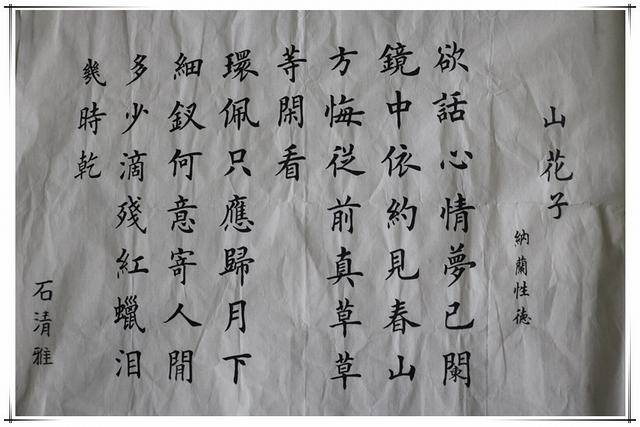 山花子
納蘭性德
欲話心情夢已闌
鏡中依約見春山
方悔從前真草草
等閑看
環佩只應歸月下
細釵何意寄人間
多少滴殘紅蠟泪
幾時乾
石清雅